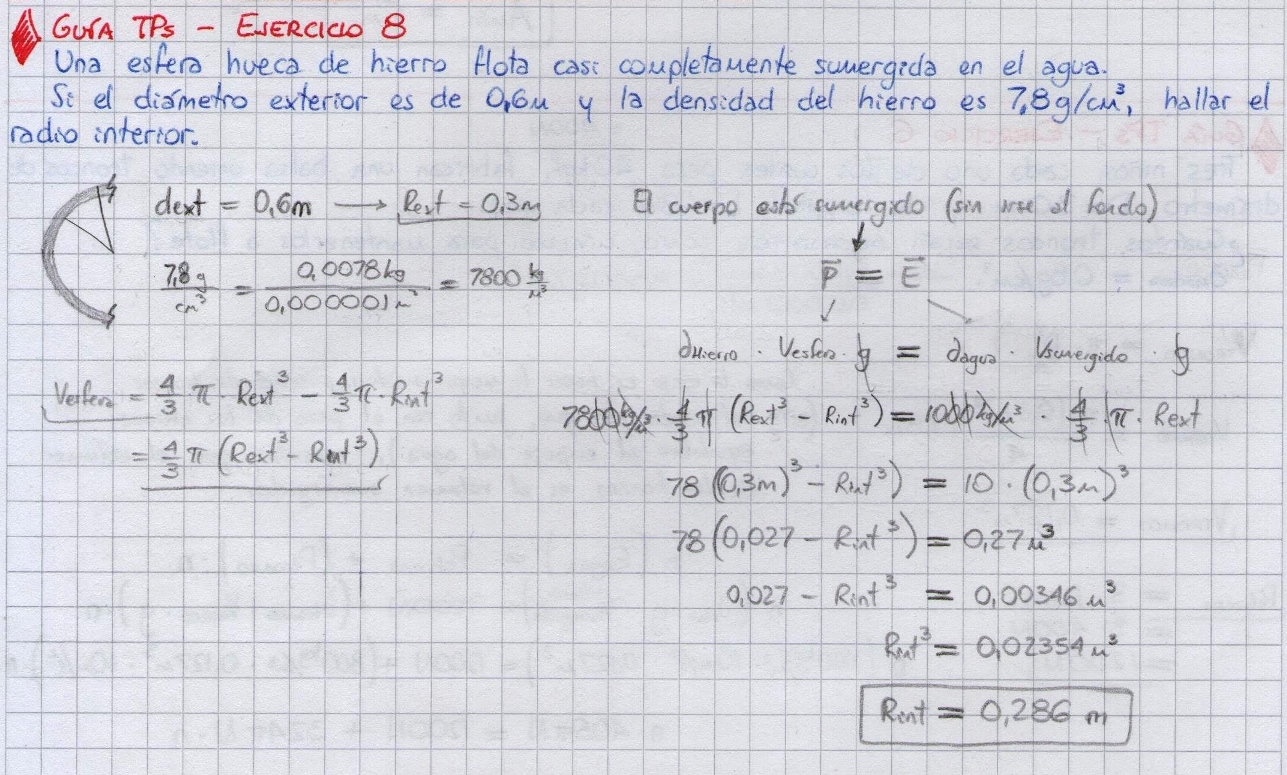 GUÍA TPs - EJERCICIO 8
Una esfera hueca de hierro flota casi completamente sumergida en el agua.
Si el diámetro exterior es de 0,6m y la densidad del hierro es 7,8g/cm³, hallar el
radio interior.
dext = 0,6m → Rext = 0,3m
7,8g/cm³ = 0,0078kg/0,000001m³ = 7800 kg/m³
Vesfera = 4/3 π · Rext³ - 4/3 π · Rint³
= 4/3 π (Rext³ - Rint³)
El cuerpo está sumergido (sin irse al fondo)
P = E
∂Hierro · Vesfera · g = ∂agua · Vsumergido · g
7800kg/m³ · 4/3 π (Rext³ - Rint³) = 1000kg/m³ · 4/3 π · Rext
78 ((0,3m)³ - Rint³) = 10 · (0,3m)³
78 (0,027 - Rint³) = 0,27m³
0,027 - Rint³ = 0,00346 m³
Rint³ = 0,02354 m³
Rint = 0,286 m